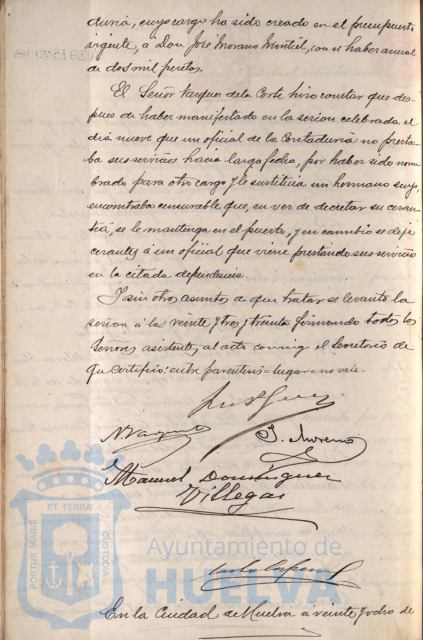 duria, cuyo cargo ha sido creado en el presupuesto
vigente, a Don José Morano Montiel, con el haber anual
de dos mil pesetas.
El Señor Vazquez de la Corte hizo constar que des-
pues de haber manifestado en la sesion celebrada el
dia nueve que un oficial de la Contaduria no presta-
ba sus servicios hacia larga fecha, por haber sido nom-
brado para otro cargo y le sustituia un hermano suyo,
encontraba censurable que, en vez de decretar su cesan-
tia, se le mantenga en el puesto, y en cambio se deje
cesante á un oficial que viene prestando sus servicios
en la citada dependencia.
Y sin otros asuntos de que tratar se levantó la
sesion á las veinte y tres y treinta firmando todos los
Señores asistentes al acto conmigo el Secretario de
que certifico: entre parentesis = lugar = no vale.
N. Vazquez
J. Moreno
Manuel Dominguez
Villegas
PORTUS MARIS ET TERRÆ CUSTODIA
Ayuntamiento de
HUELVA
En la Ciudad de Huelva á veinte y ocho de